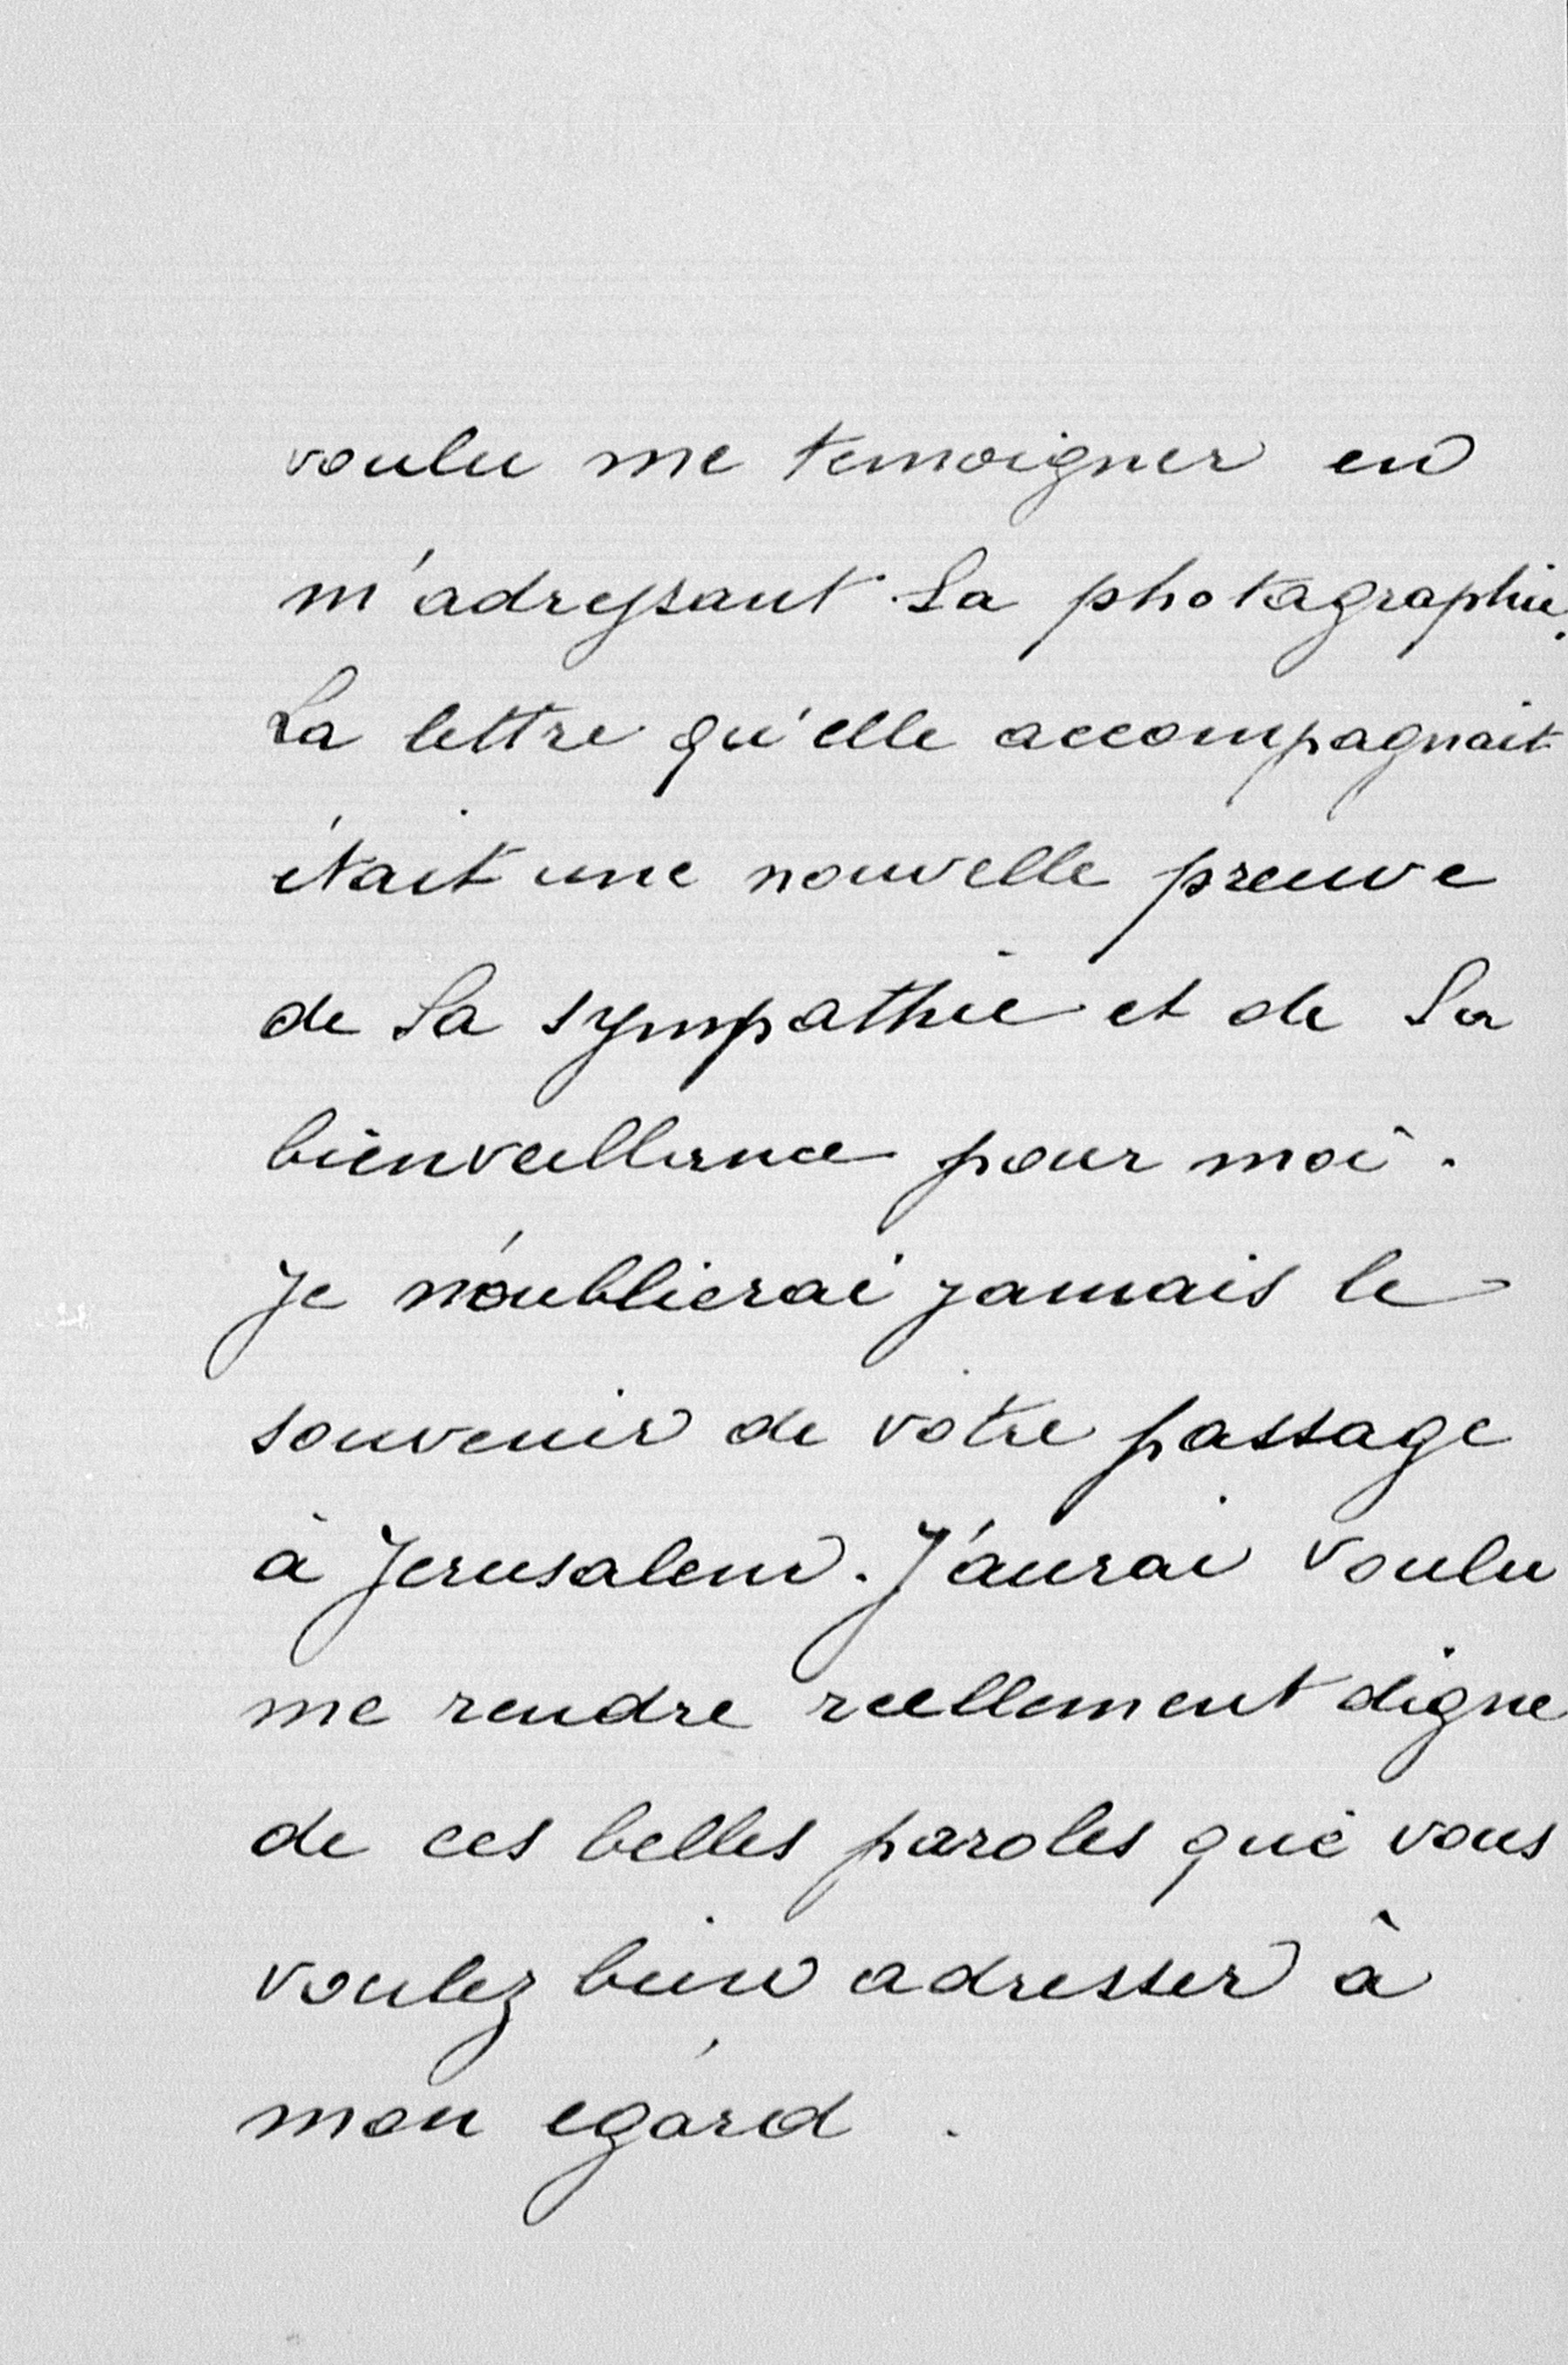 voulu me temoigner en
m'adressant Sa photographie.
La lettre qu'elle accompagnait
était une nouvelle preuve
de Sa sympathie et de Sa
bienveillance pour moi.
Je n'oublierai jamais le
souvenir de votre passage
à Jerusalem. J'aurai voulu
me rendre reellement digne
de ces belles paroles que vous
voulez bien adresser à
mon egárd.